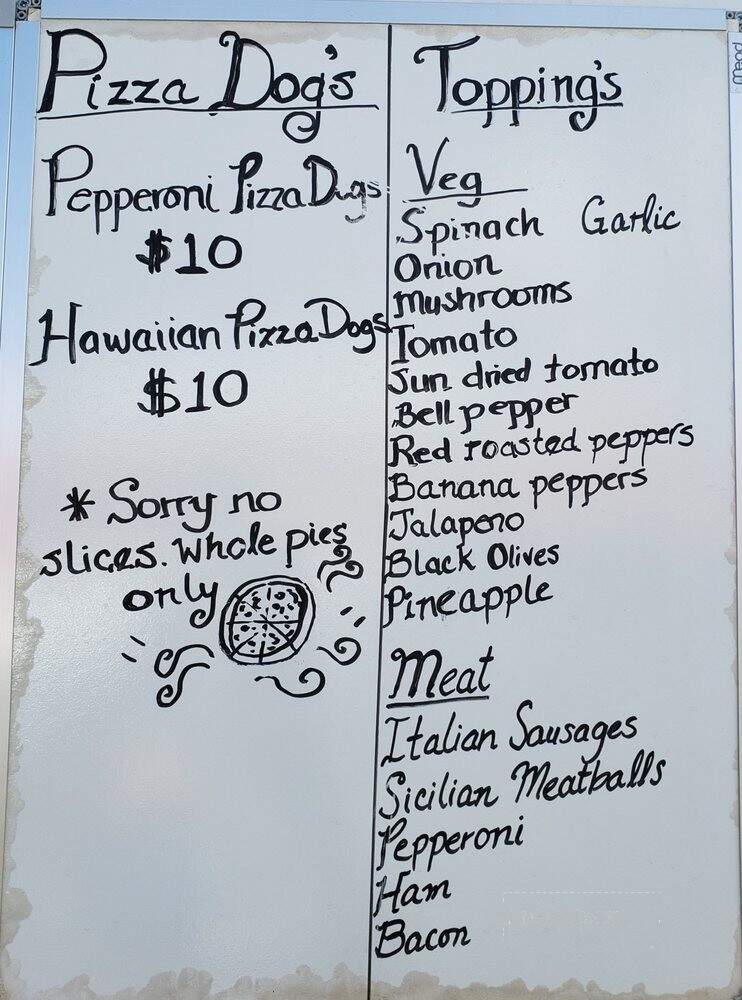 Pizza Dog's
Pepperoni Pizza Dogs
$10
Hawaiian Pizza Dogs
$10
* Sorry no
slices. Whole pies
only
Topping's
Veg
Spinach Garlic
Onion
Mushrooms
Tomato
Sun dried tomato
Bell pepper
Red roasted peppers
Banana peppers
Jalapeno
Black Olives
Pineapple
Meat
Italian Sausages
Sicilian Meatballs
Pepperoni
Ham
Bacon
Mead